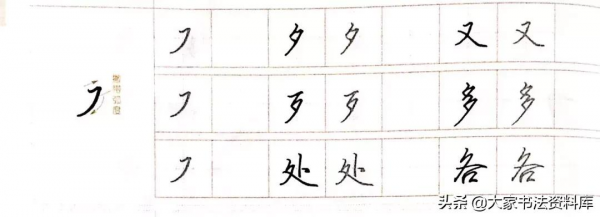 ㇇ 夕 夕 又 又
㇇ 歹 歹 多 多
㇇ 处 处 各 各
头条 @大家书法资料库